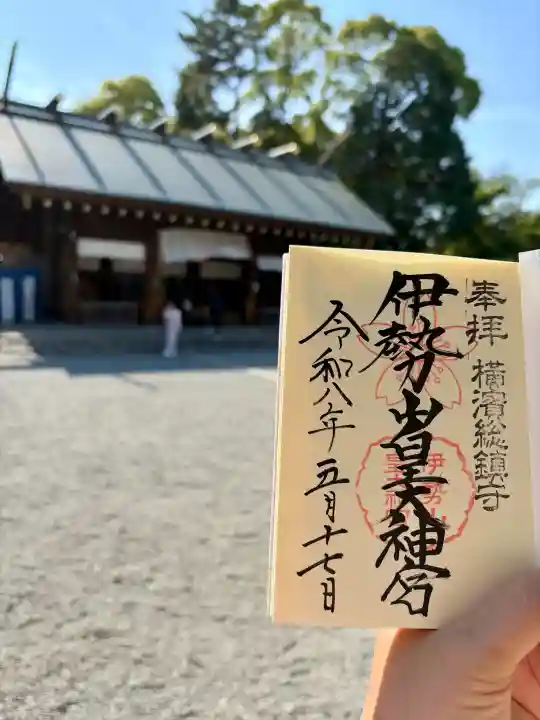 奉拝 横濱総鎮守
伊勢山皇大神宮
令和八年五月十七日
伊勢山
皇大神宮